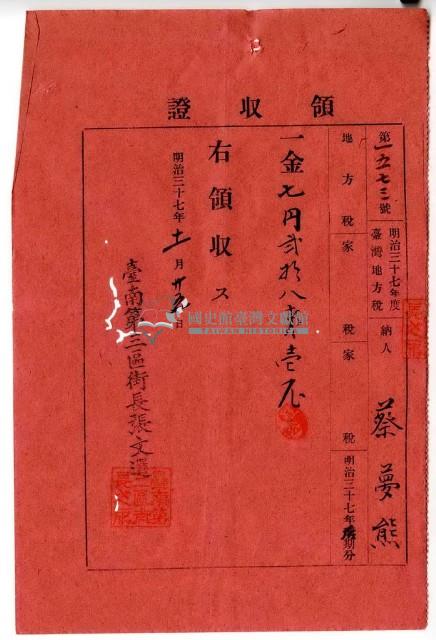 領收證
第一五七三號
明治三十七年度
臺灣地方稅
納人 蔡夢熊
地方稅家稅家稅
明治三十七年後期分
一金七円弐拾八錢壹厘
右領收ス
明治三十七年十一月廿五日
臺南第三區街長張文選
國史館臺灣文獻館
TAIWAN HISTORICA